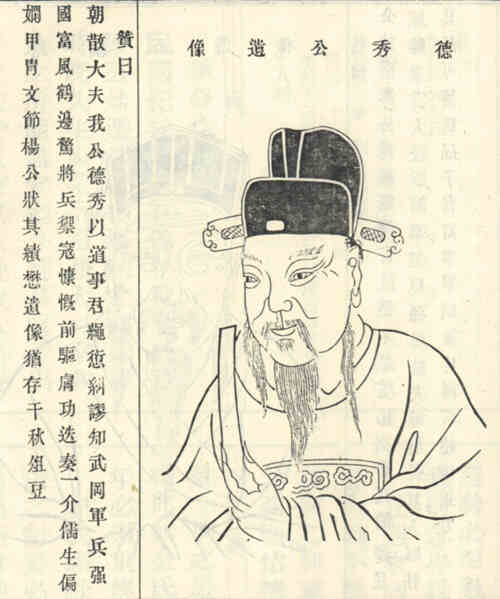 德秀公遺像
贊曰
朝散大夫我公德秀以道事君繩愆糾謬知武岡軍兵强
國富風鶴邊驚將兵禦寇慷慨前驅膚功迭奏一介儒生偏
嫻甲冑文節楊公狀其績懋遺像猶存千秋俎豆